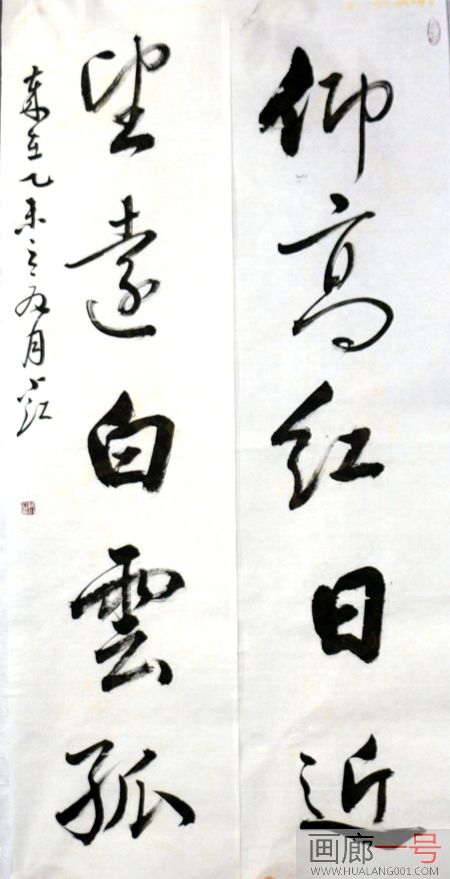 仰高红日近
望遠白雲孤
乙未之五月
画廊一号
WWW.HUALANG001.COM